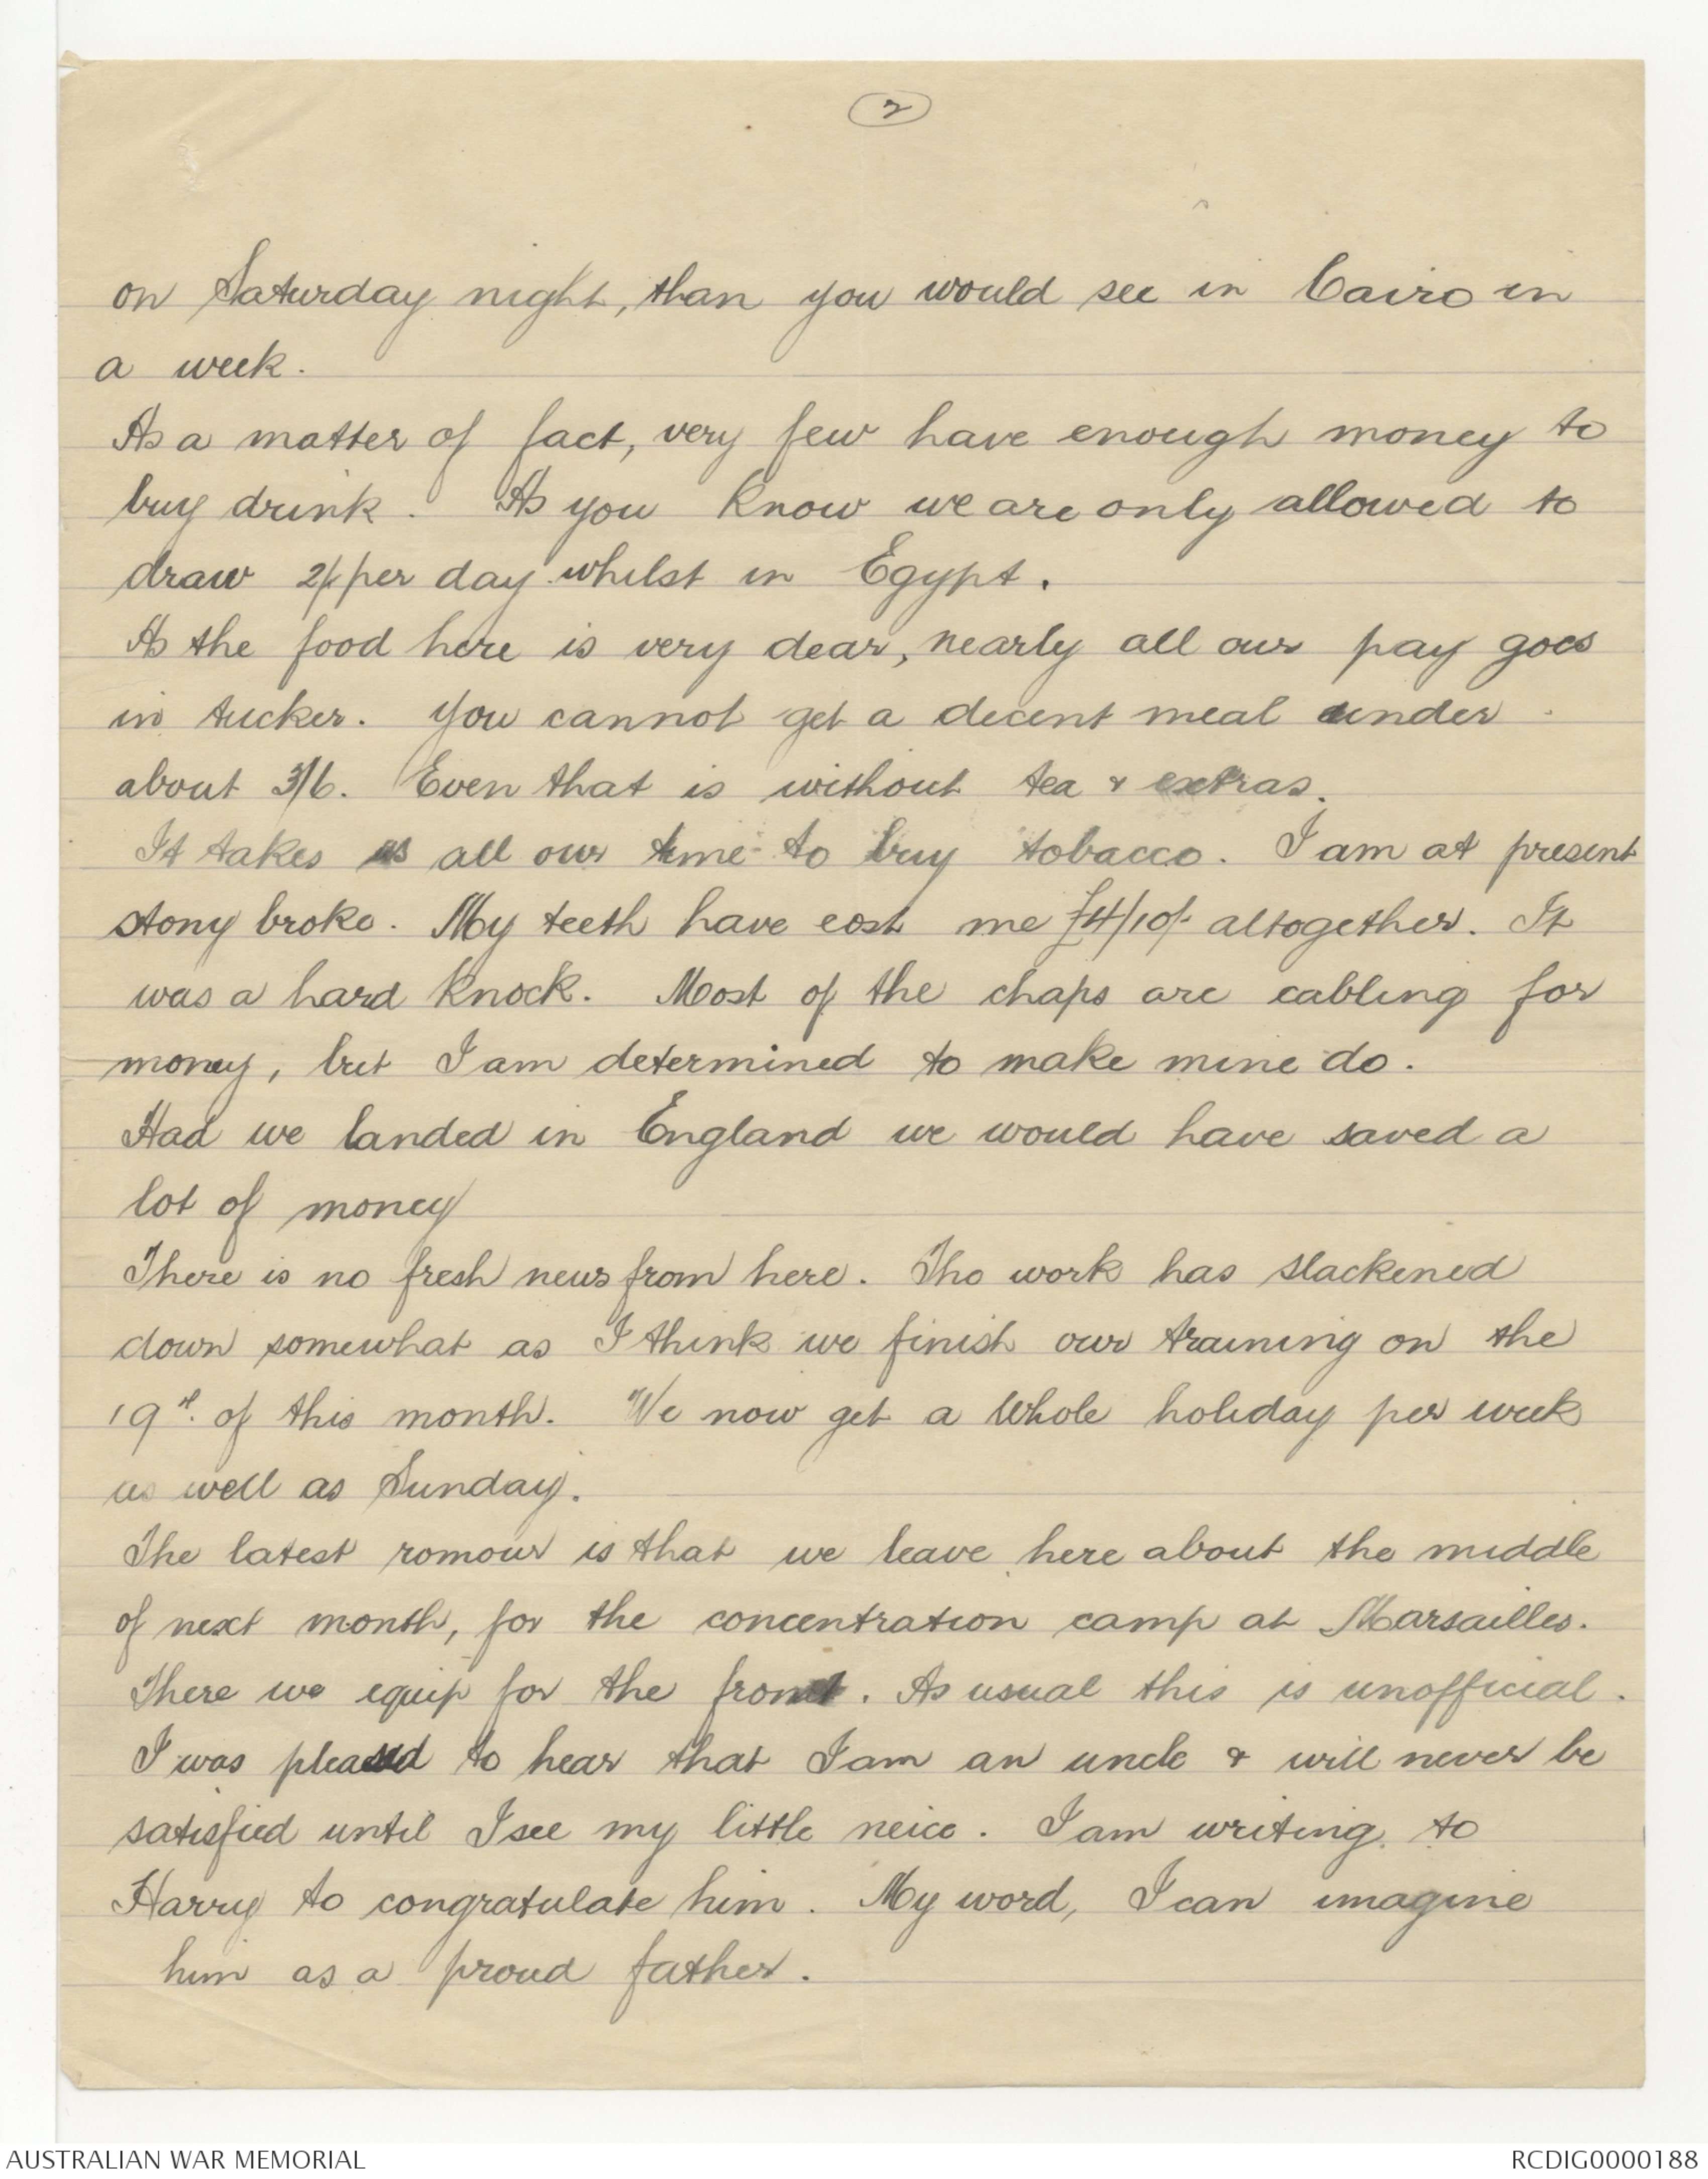 2
on Saturday night, than you would see in Cairo in
a week.
As a matter of fact, very few have enough money to
buy drink. As you know we are only allowed to
draw 2/- per day whilst in Egypt.
As the food here is very dear, nearly all our pay goes
in tucker. You cannot get a decent meal under
about 3/6. Even that is without tea & extras.
It takes us all our time to buy tobacco. I am at present
stony broke. My teeth have cost me £4/10/- altogether. It
was a hard knock. Most of the chaps are cabling for
money, but I am determined to make mine do.
Had we landed in England we would have saved a
lot of money
There is no fresh news from here. The work has slackened
down somewhat as I think we finish our training on the
19th. of this month. We now get a whole holiday per week
as well as Sunday.
The latest romour is that we leave here about the middle
of next month, for the concentration camp at Marsailles.
There we equip for the front. As usual this is unofficial.
I was pleased to hear that I am an uncle & will never be
satisfied until I see my little neice. I am writing to
Harry to congratulate him. My word, I can imagine
him as a proud father.
AUSTRALIAN WAR MEMORIAL
RCDIG0000188